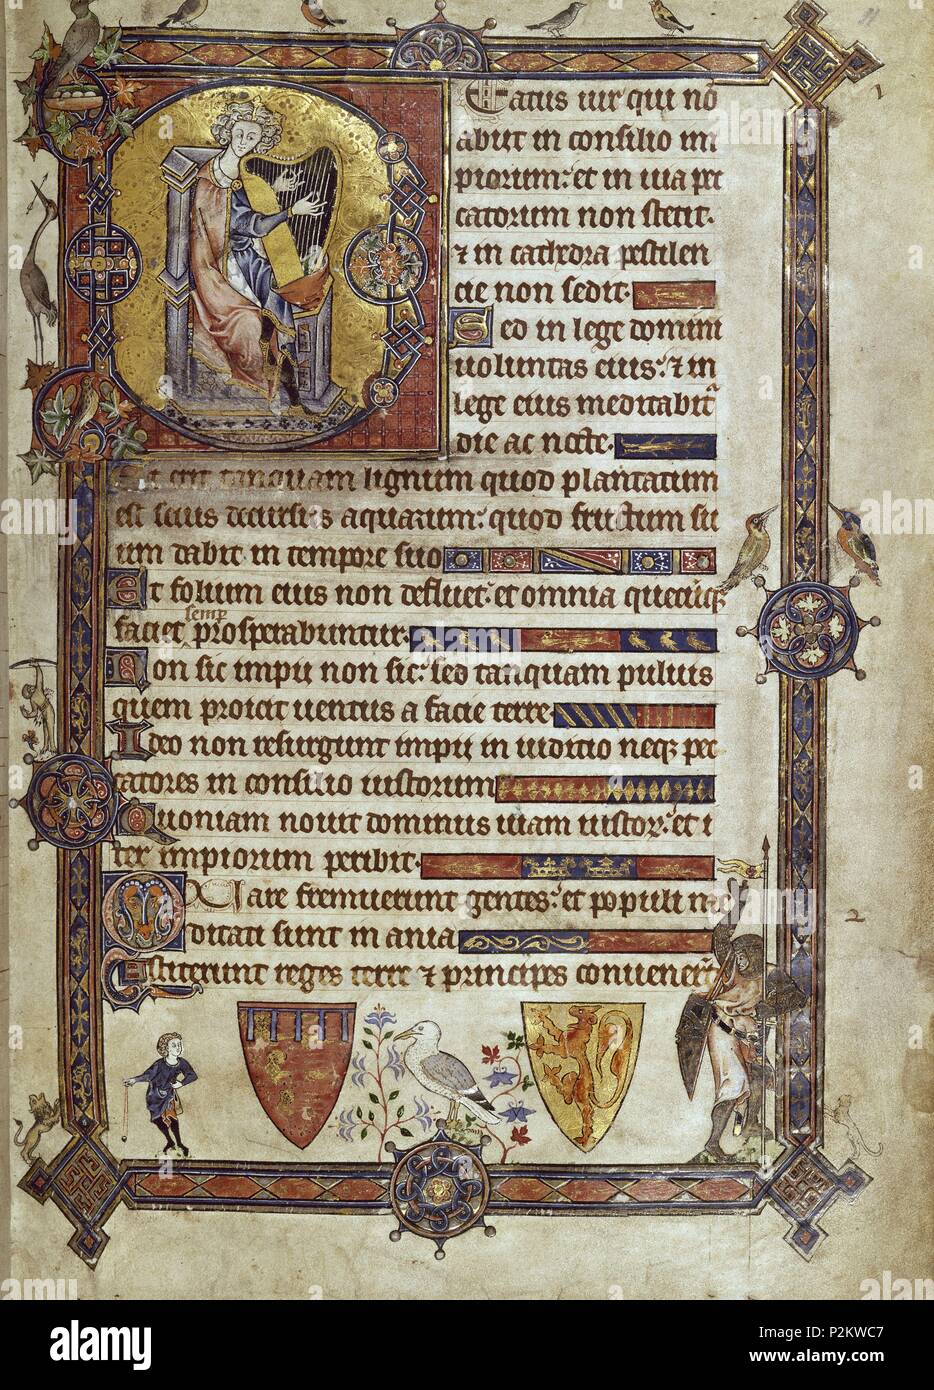 Eatus uir qui nō
abiit in consilio im
piorum: et in uia pec
catorum non stetit.
⁊ in cathedra pestilen
cie non sedit.
Sed in lege domini
uoluntas eius: ⁊ in
lege eius meditabitᷣ
die ac nocte.
Et erit tanquam lignum quod plantatum
est secus decursus aquarum: quod fructum su
um dabit in tempore suo
Et folium eius non defluet: et omnia quecūqꝫ
faciet semp prosperabuntur.
Non sic impij non sic: sed tanquam puluis
quem proicit uentus a facie terre
Ideo non resurgunt impij in iuditio neqꝫ pec
catores in consilio iustorum
Quoniam nouit dominus uiam iustoꝝ: et i
ter impiorum peribit.
Quare fremuerunt gentes: et populi me
ditati sunt inania
Astiterunt reges terre ⁊ principes conuenerūt
1
2
alamy
Image ID: P2KWC7
www.alamy.com